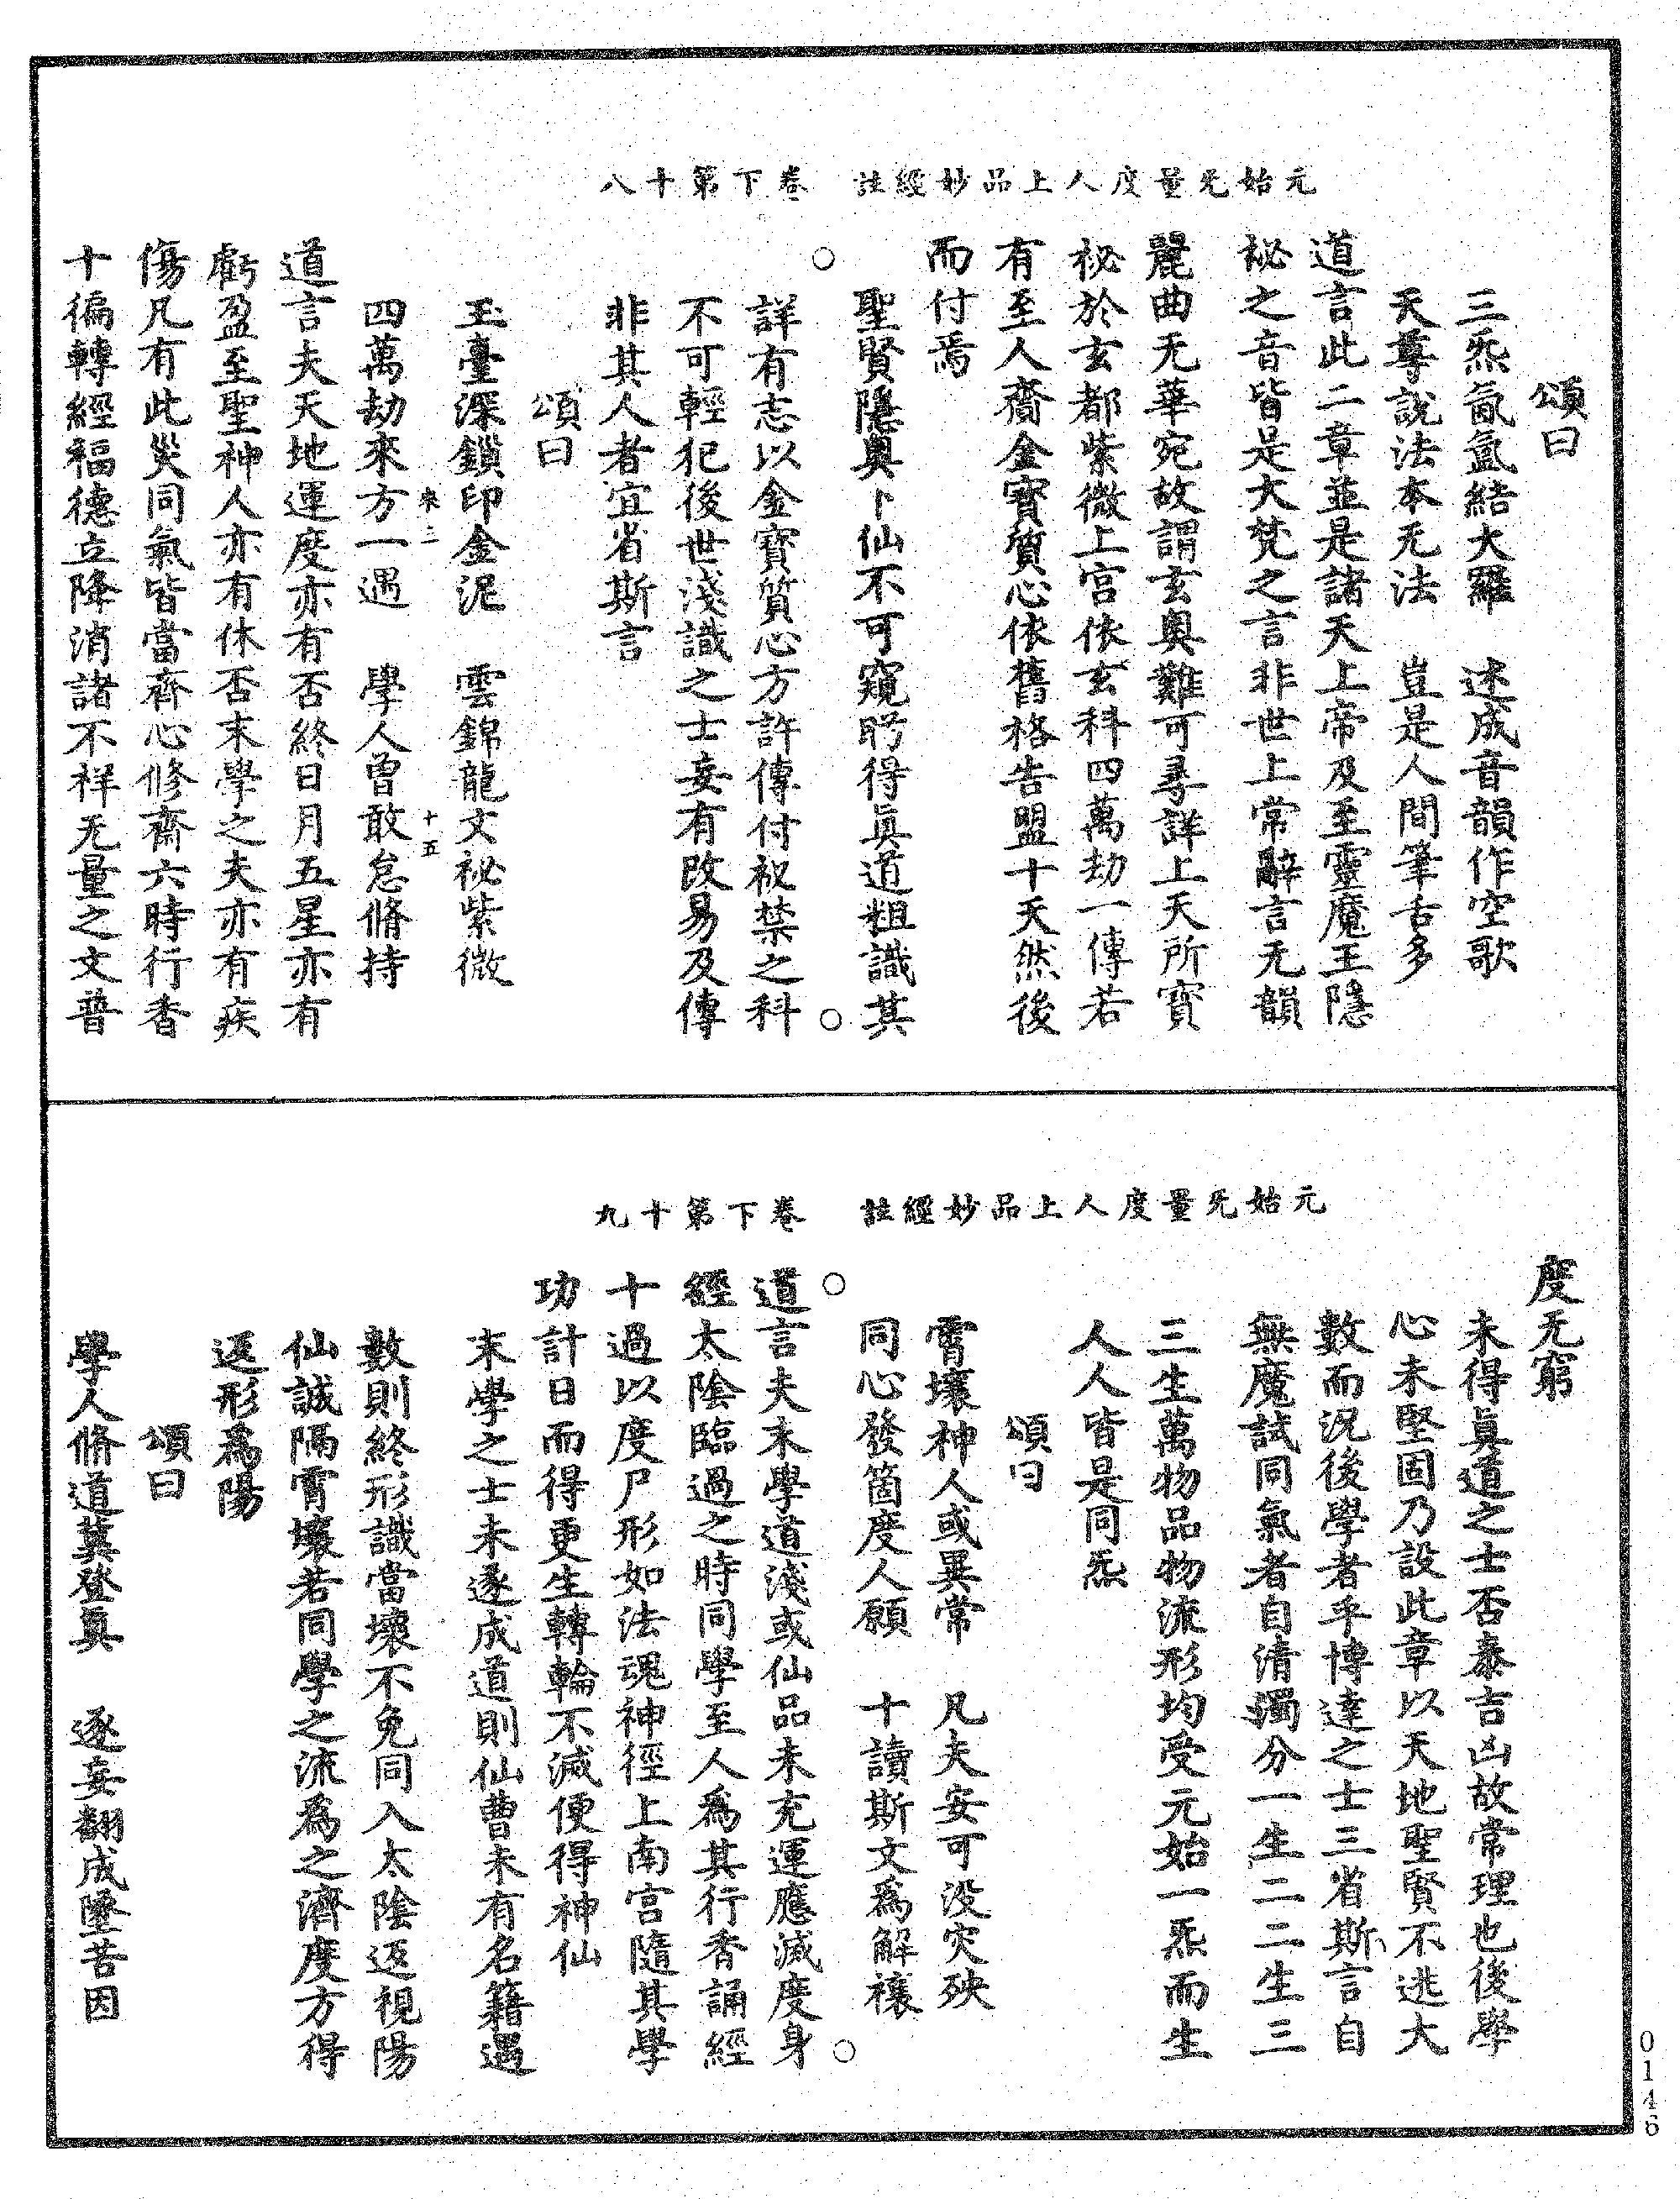 元始无量度人上品妙經註　卷下第十八
頌曰
三炁氤氳結大羅　述成音韻作空歌
天尊說法本无法　豈是人間筆舌多
道言此二章並是諸天上帝及至靈魔王隱
祕之音皆是大梵之言非世上常辭言无韻
麗曲无華宛故謂玄奧難可尋詳上天所寶
祕於玄都紫微上宮依玄科四萬劫一傳若
有至人齎金寶質心依舊格告盟十天然後
而付焉
聖賢隱奧卜仙不可窺眄得眞道粗識其
詳有志以金寶質心方許傳付祕禁之科
不可輕犯後世淺識之士妄有改易及傳
非其人者宜省斯言
頌曰
玉臺深鎖印金泥　雲錦龍文祕紫微
來三　十五
四萬劫來方一遇　學人曾敢怠脩持
道言夫天地運度亦有否終日月五星亦有
虧盈至聖神人亦有休否末學之夫亦有疾
傷凡有此災同氣皆當齊心修齋六時行香
十徧轉經福德立降消諸不祥无量之文普
元始无量度人上品妙經註　卷下第十九
度无窮
未得眞道之士否泰吉凶故常理也後學
心未堅固乃設此章以天地聖賢不逃大
數而況後學者乎博達之士三省斯言自
無魔試同氣者自清濁分一生二二生三
三生萬物品物流形均受元始一炁而生
人人皆是同炁
頌曰
霄壤神人或異常　凡夫安可没灾殃
同心發箇度人願　十讀斯文爲解禳
道言夫末學道淺或仙品未充運應滅度身
經太陰臨過之時同學至人爲其行香誦經
十過以度尸形如法魂神徑上南宮隨其學
功計日而得更生轉輪不滅便得神仙
末學之士未遂成道則仙曹未有名籍遇
數則終形識當壞不免同入太陰返視陽
仙誠隔霄壤若同學之流爲之濟度方得
返形爲陽
頌曰
學人脩道冀登眞　逐妄翻成墮苦因
0146